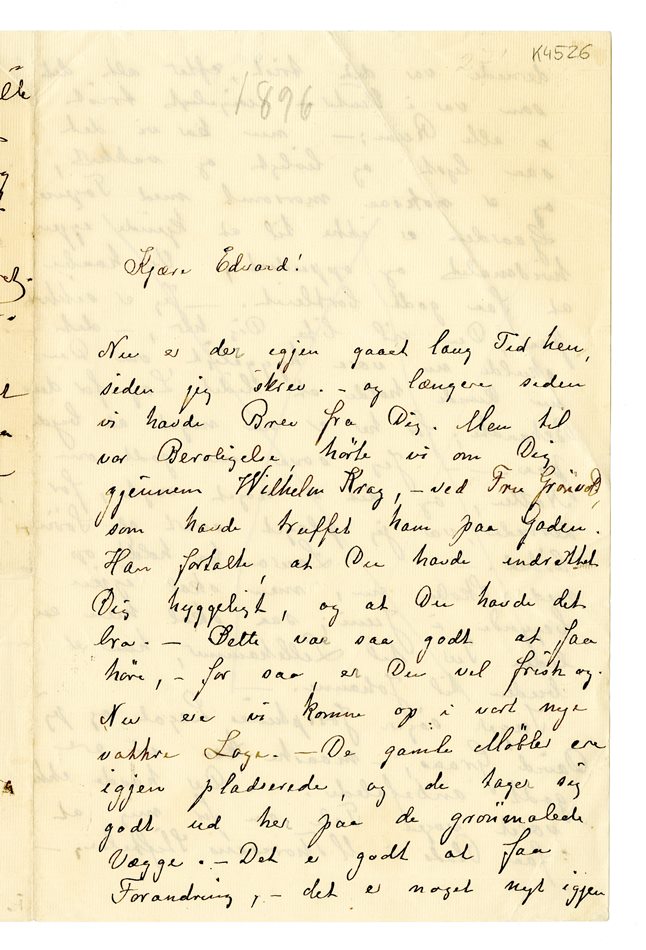 K4526
1896
Kjære Edvard!
Nu er der igjen gaaet lang Tid hen,
siden jeg skrev. – og længere siden
vi havde Brev fra Dig. Men til
vor Beroligelse, hörte vi om Dig
gjennem Wilhelm Krag, – ved Fru Grönvold,
som havde truffet ham paa Gaden.
Han fortalte, at Du havde indrettet
Dig hyggeligt, og at Du havde det
bra. – Dette var saa godt at faa
höre, – for saa, er Du vel frisk og.
Nu ere vi komne op i vort nye
vakkre Loge. – De gamle Möbler ere
igjen pladserede, og de tager sig
godt ud her paa de grönmalede
Vægge. – Det er godt at faa
Forandring, – det er noget nyt igjen